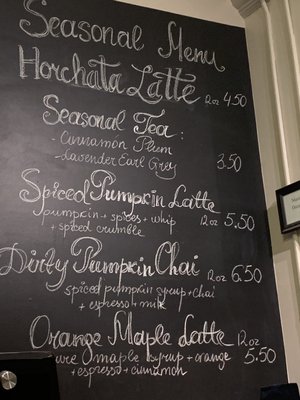 Seasonal Menu
Horchata Latte 12oz 4.50
Seasonal Tea:
- Cinnamon Plum
- Lavender Earl Grey 3.50
Spiced Pumpkin Latte
pumpkin + spices + whip 12oz 5.50
+ spiced crumble
Dirty Pumpkin Chai 12oz 6.50
spiced pumpkin syrup + chai
+ espresso + milk
Orange Maple Latte 12oz
maple syrup + orange 5.50
+ espresso + cinnamon